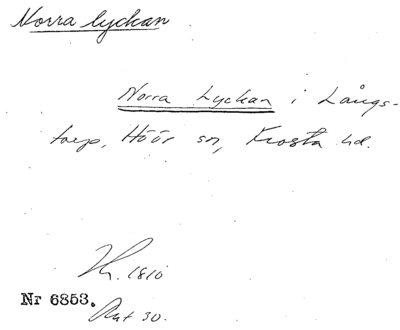 Norra lyckan
Norra Lyckan i Långs-
torp, Höör sn, Frosta hd.
1810
Nr 6853.
Akt 30.